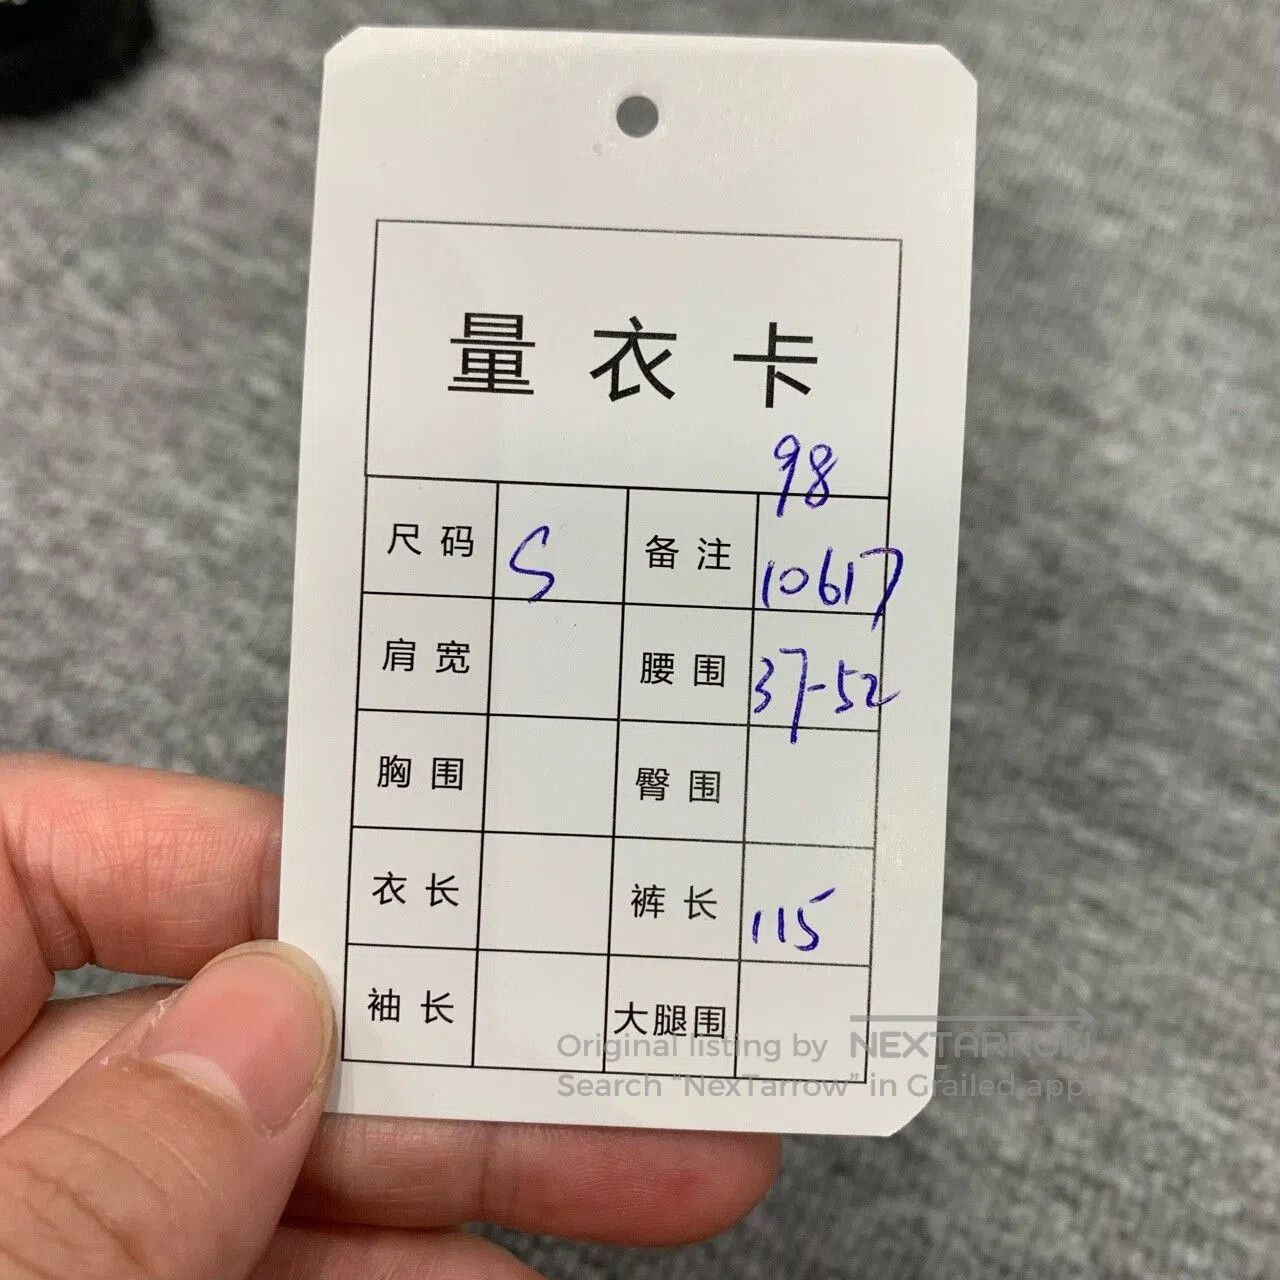 量衣卡
98
尺码 S 备注 10617
肩宽 腰围 37-52
胸围 臀围
衣长 裤长 115
袖长 大腿围
Original listing by NEXTARROW
Search “NexTarrow” in Grailed app